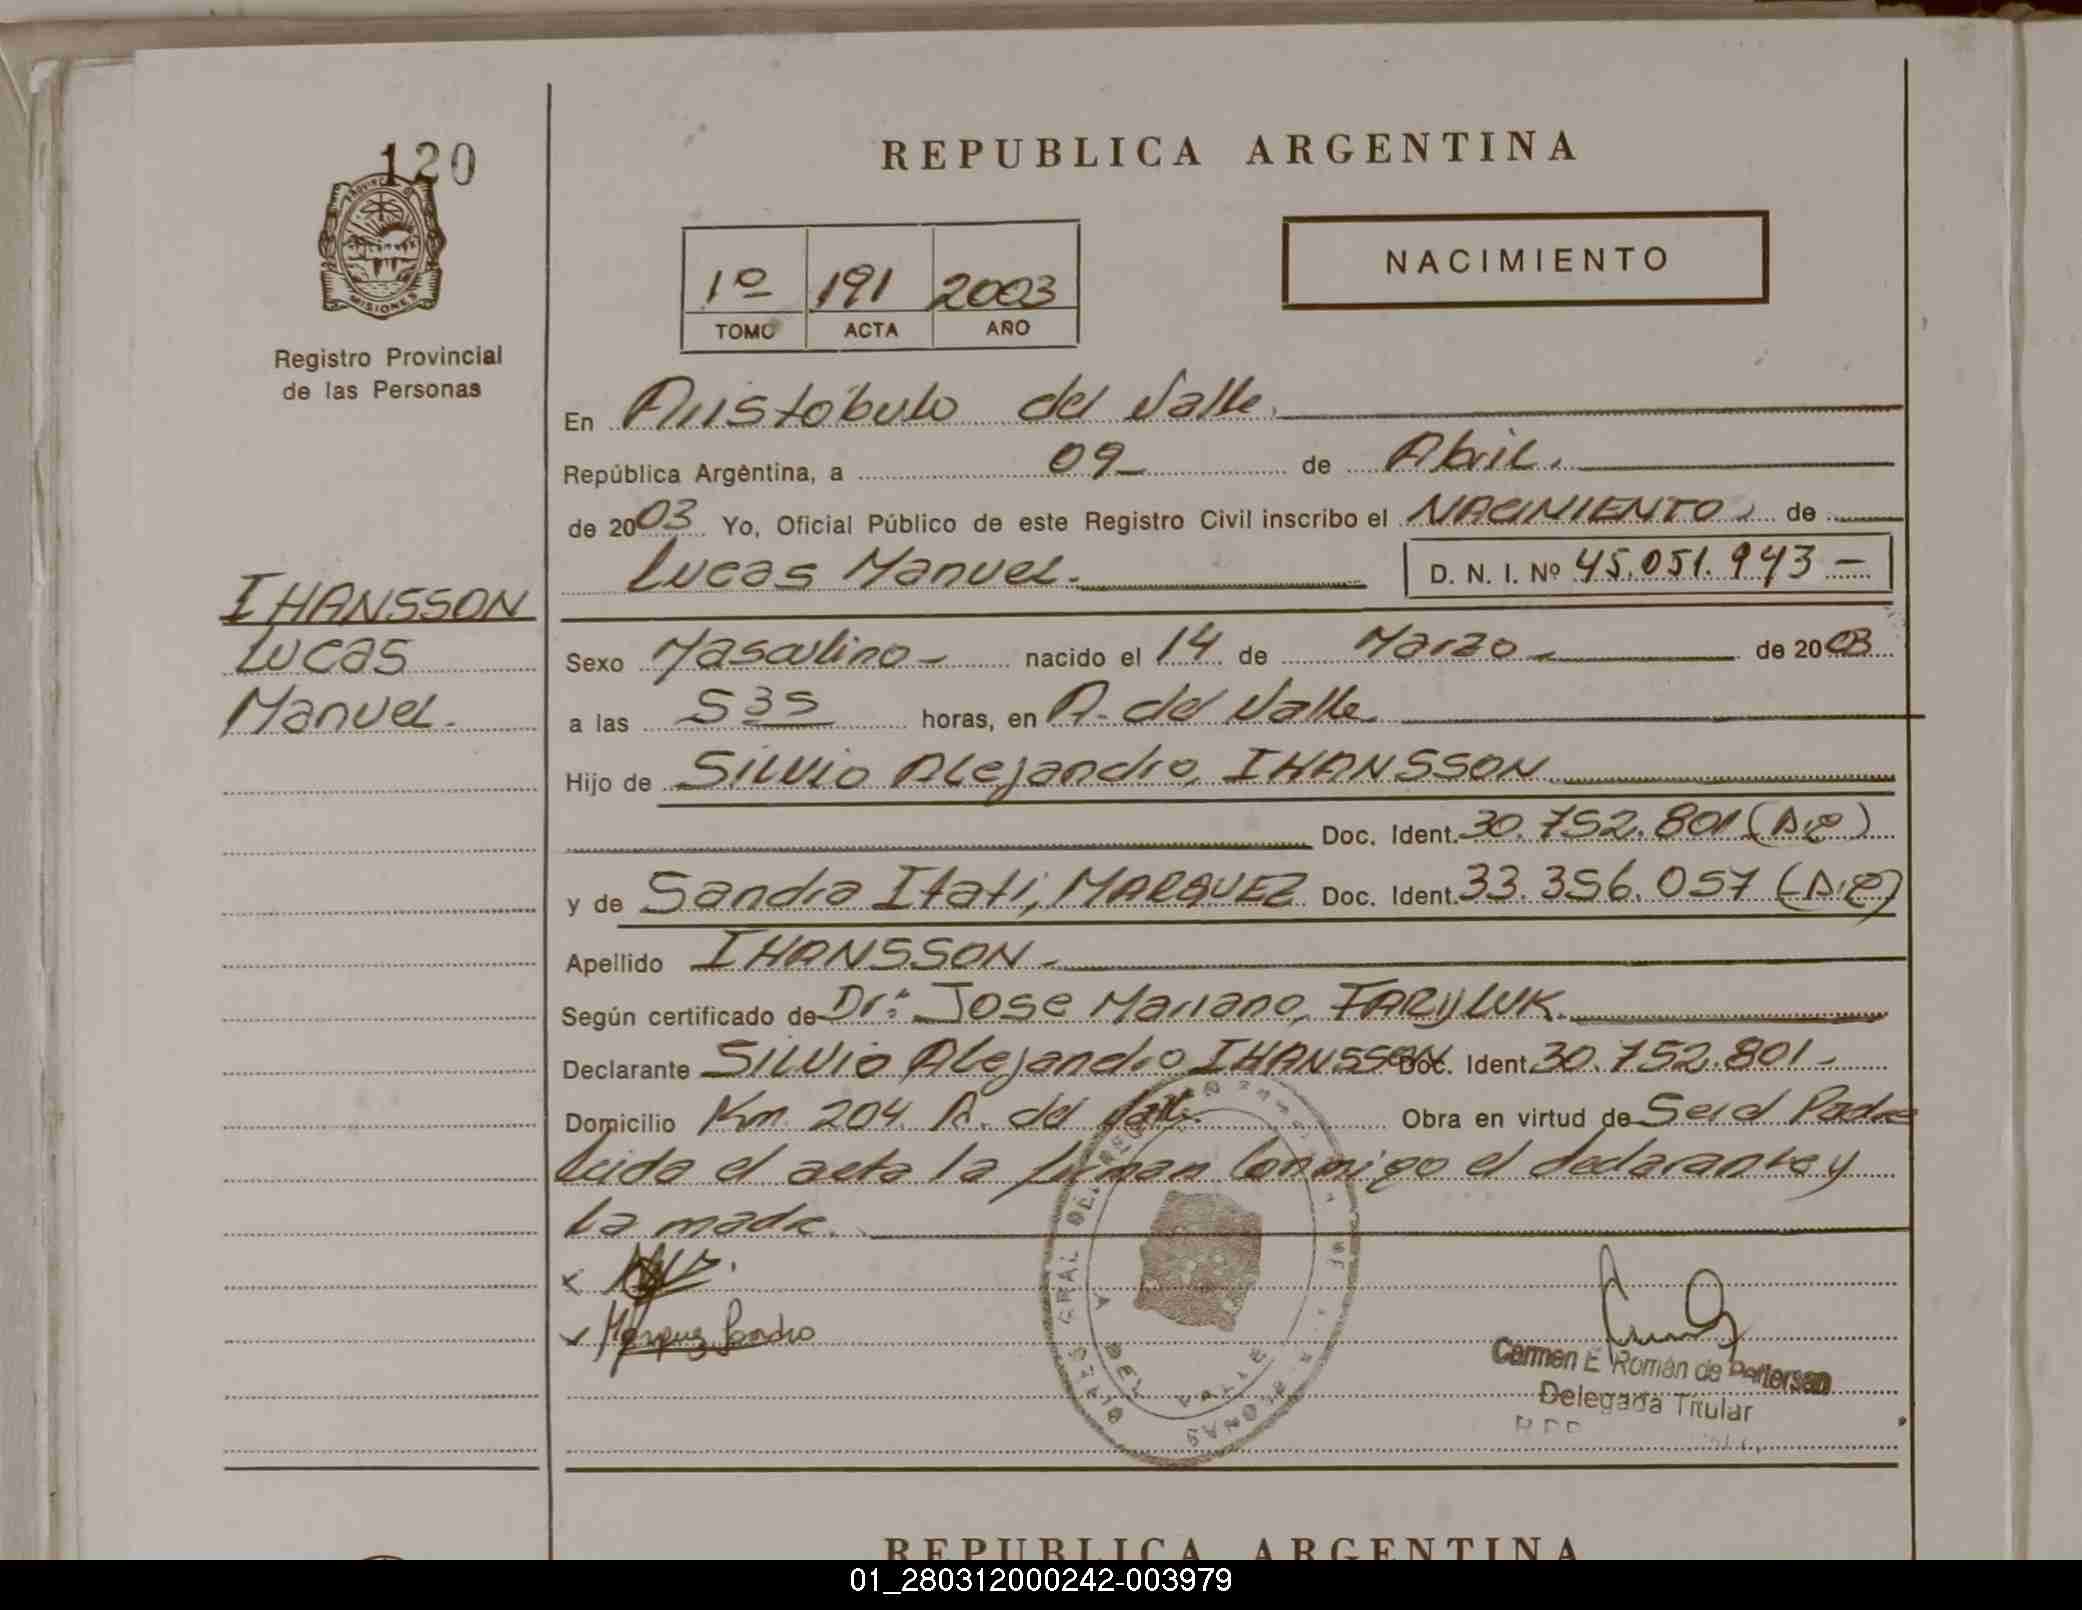 120
PROVINCIA DE
MISIONES
Registro Provincial
de las Personas
IHANSSON
Lucas
Manuel.
REPUBLICA ARGENTINA
1º 191 2003
TOMO ACTA AÑO
NACIMIENTO
En Aristóbulo del Valle.
República Argentina, a 09 de Abril.
de 2003 Yo, Oficial Público de este Registro Civil inscribo el NACIMIENTO de
Lucas Manuel. D. N. I. Nº 45.051.943 –
Sexo Masculino – nacido el 14 de Marzo de 2003
a las 535 horas, en A. del Valle.
Hijo de Silvio Alejandro, IHANSSON
Doc. Ident. 30.752.801
y de Sandra Itati, MARQUEZ Doc. Ident. 33.356.057
Apellido IHANSSON.
Según certificado de Dr: Jose Mariano,
Declarante Silvio Alejandro IHANSSON Doc. Ident. 30.752.801 –
Domicilio Km. 204. A. del Valle. Obra en virtud de Ser el Padre
Leida el acta la firman Conmigo el declarante y
la madre.
Marquez Sandra
A DEL VALLE
Carmen E. Román de Pettersen
Delegada Titular
REPUBLICA ARGENTINA
01_280312000242-003979